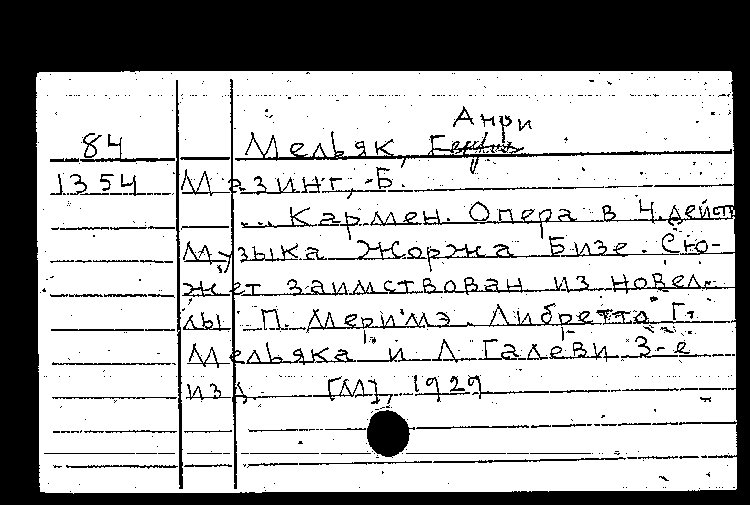 Анри
84 Мельяк,
1354 Мазинг, Б.
... Кармен. Опера в 4. дейст
Музыка Жоржа Бизе. Сю-
жет заимствован из новел-
лы П. Меримэ. Либретто Г.
Мельяка и Л. Галеви 3-е
изд. [М], 1929